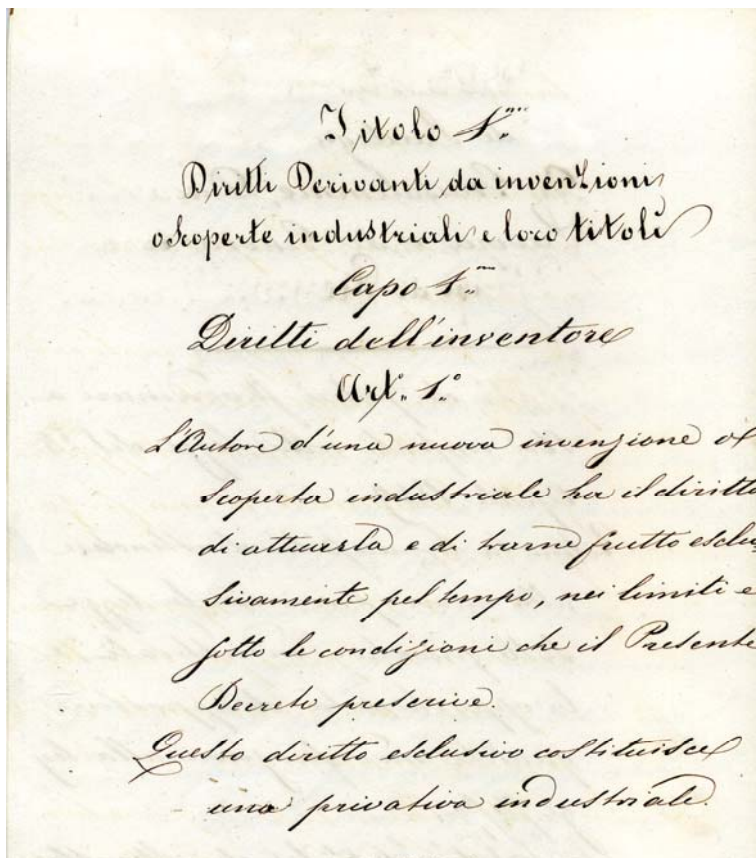 Titolo 1.mo
Diritti Derivanti da invenzioni
o Scoperte industriali e loro titoli
Capo 1.mo
Diritti dell'inventore
Art.o 1.o
L'Autore d'una nuova invenzione o
Scoperta industriale ha il diritto
di attuarla e di trarne frutto esclu,
sivamente pel tempo, nei limiti e
sotto le condizioni che il Presente
Decreto prescrive.
Questo diritto esclusivo costituisce
una privativa industriale.